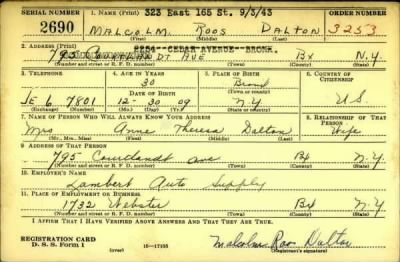 323 East 165 St. 9/3/43
SERIAL NUMBER 1. NAME (Print)
2690 MALCOLM ROOS DALTON 3253
(First) (Middle) (Last)
2. ADDRESS (Print) CEDAR AVENUE - BRONX.
795 COURTLANDT AVE Bx N.Y
(Number and street or R. F. D. number) (Town) (County) (State)
3. TELEPHONE 4. AGE IN YEARS 5. PLACE OF BIRTH 6. COUNTRY OF CITIZENSHIP
30 Bronx
DATE OF BIRTH (Town or county)
JE 6 7801 12-30 09 N.Y U.S.
(Exchange) (Number) (Mo.) (Day) (Yr.) (State or country)
7. NAME OF PERSON WHO WILL ALWAYS KNOW YOUR ADDRESS 8. RELATIONSHIP OF THAT PERSON
Mrs Anne Theresa Dalton Wife
(Mr., Mrs., Miss) (First) (Middle) (Last)
9. ADDRESS OF THAT PERSON
795 Courtlandt ave Bx N.Y.
(Number and street or R. F. D. number) (Town) (County) (State)
10. EMPLOYER'S NAME
Lambert Auto Supply
11. PLACE OF EMPLOYMENT OR BUSINESS
1732 Webster Bx N.Y.
(Number and street or R. F. D. number) (Town) (County) (State)
I AFFIRM THAT I HAVE VERIFIED ABOVE ANSWERS AND THAT THEY ARE TRUE.
REGISTRATION CARD
D. S. S. Form 1 (over) 16-17105 Malcolm Roos Dalton
(Registrant's signature)